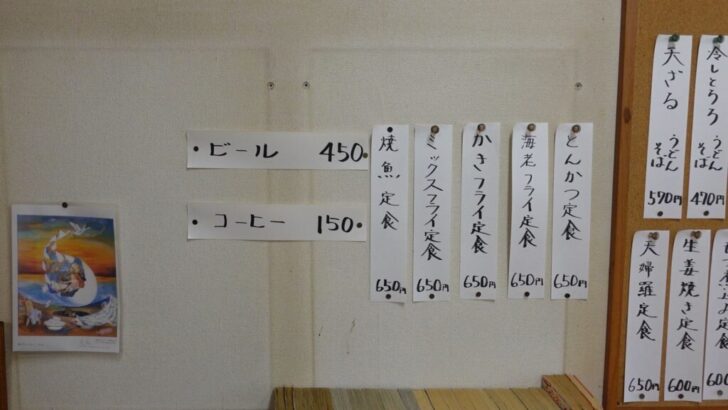 ビール 450
コーヒー 150
とんかつ定食 650円
海老フライ定食 650円
かきフライ定食 650円
ミックスフライ定食 650円
焼魚定食 650円
冷しとろろ うどん そば 470円
天ざる うどん そば 570円
生姜焼き定食 600円
天婦羅定食 650円